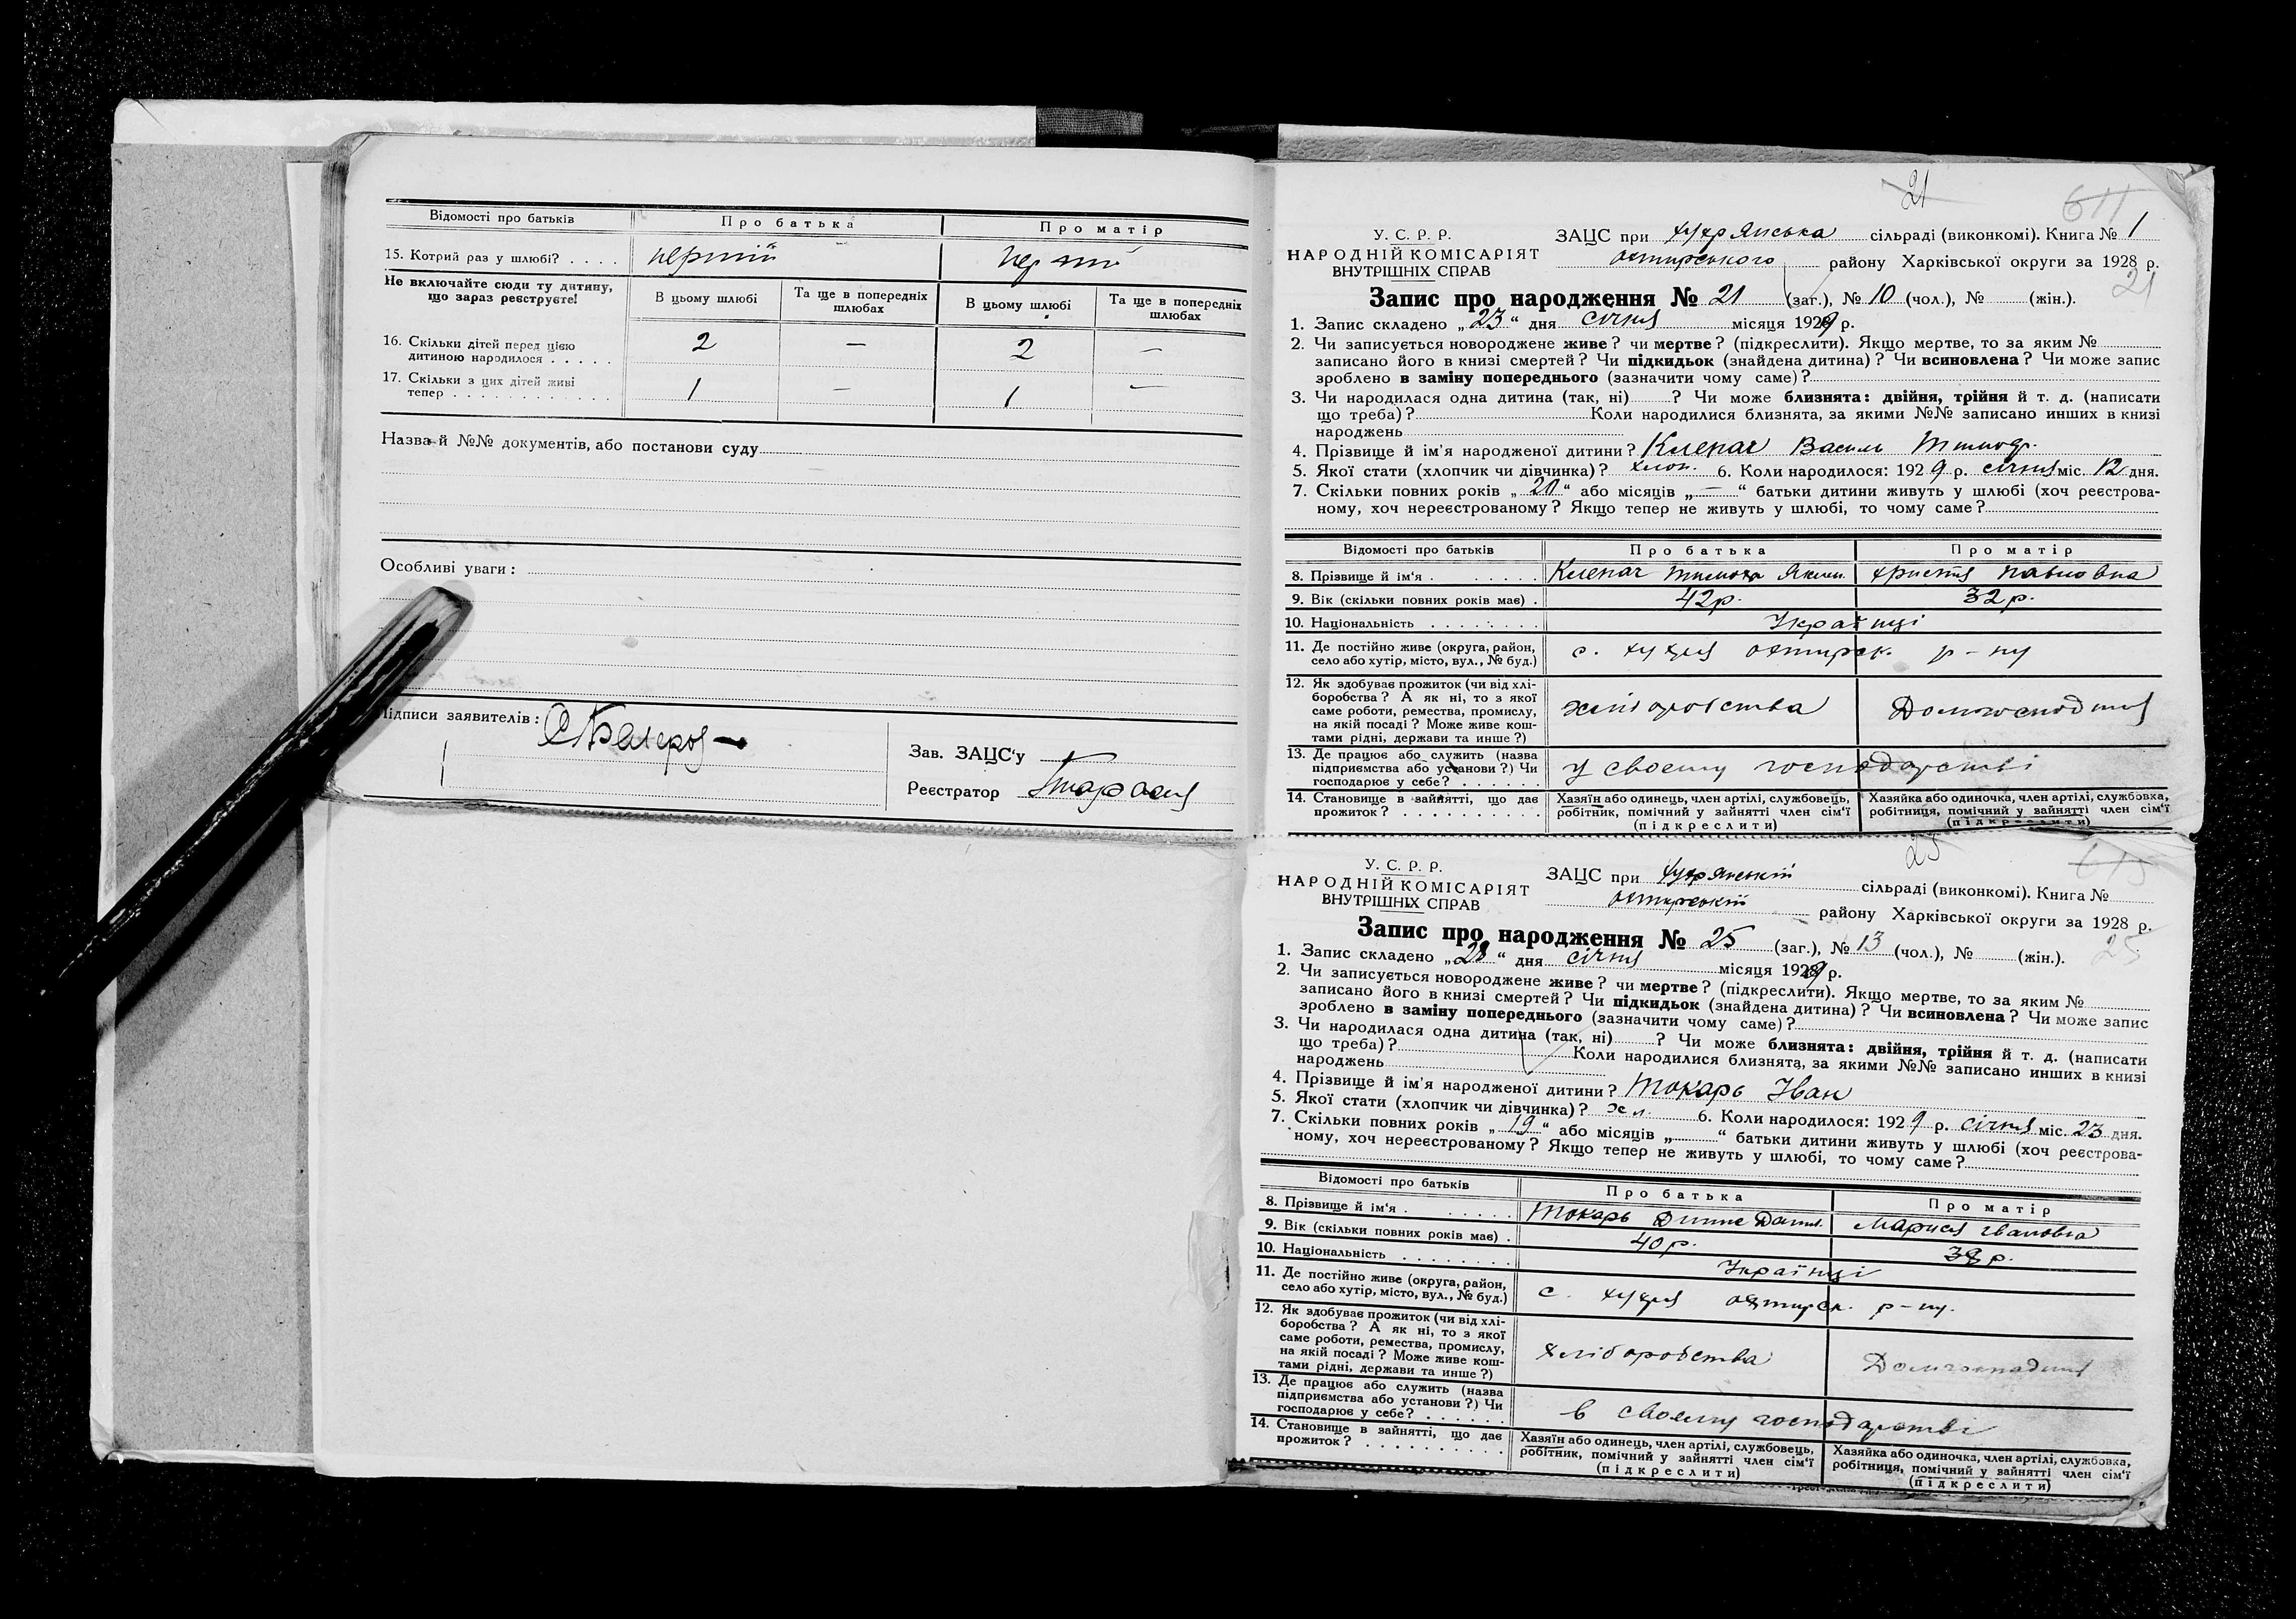 Відомості про батьків
Про батька
Про матір
15. Котрий раз у шлюбі? . . . .
перший
Не включайте сюди ту дитину,
що зараз реєструєте!
В цьому шлюбі
Та ще в попередніх
шлюбах
В цьому шлюбі
Та ще в попередніх
шлюбах
16. Скільки дітей перед цією
дитиною народилося . . . . .
2 — 2 —
17. Скільки з цих дітей живі
тепер . . . . . . . . . . . .
1 — 1 —
Назва й №№ документів, або постанови суду
Особливі уваги:
Підписи заявителів:
Зав. ЗАЦС'у
Реєстратор
21
611
У. С. Р. Р.
НАРОДНІЙ КОМІСАРІЯТ
ВНУТРІШНІХ СПРАВ
ЗАЦС при хухрянська сільраді (виконкомі). Книга № 1
охтирського району Харківської округи за 1928 р.
21
Запис про народження № 21 (заг.), № 10 (чол.), № (жін.).
1. Запис складено „23“ дня січня місяця 1929 р.
2. Чи записується новороджене живе? чи мертве? (підкреслити). Якщо мертве, то за яким №
записано його в книзі смертей? Чи підкидьок (знайдена дитина)? Чи всиновлена? Чи може запис
зроблено в заміну попереднього (зазначити чому саме)?
3. Чи народилася одна дитина (так, ні) ? Чи може близнята: двійня, трійня й т. д. (написати
що треба)? Коли народилися близнята, за якими №№ записано инших в книзі
народжень
4. Прізвище й ім'я народженої дитини? Клепач Василь
5. Якої стати (хлопчик чи дівчинка)? хлоп. 6. Коли народилося: 1929 р. січня міс. 12 дня.
7. Скільки повних років „20“ або місяців „—“ батьки дитини живуть у шлюбі (хоч реєстрова-
ному, хоч нереєстрованому? Якщо тепер не живуть у шлюбі, то чому саме?
Відомості про батьків
Про батька
Про матір
8. Прізвище й ім'я . . . . . . .
Клепач Тимоха Яким.
христя павловна
9. Вік (скільки повних років має) .
42 р.
32 р.
10. Національність . . . . . . . .
Українці
11. Де постійно живе (округа, район,
село або хутір, місто, вул., № буд.)
с. хухря охтирск. р-ну
12. Як здобуває прожиток (чи від хлі-
боробства? А як ні, то з якої
саме роботи, ремества, промислу,
на якій посаді? Може живе кош-
тами рідні, держави та инше?)
хліборобства
Домогосподиня
13. Де працює або служить (назва
підприємства або установи?) Чи
господарює у себе? . . . . . .
у своєму господарстві
14. Становище в зайнятті, що дає
прожиток? . . . . . . . . . .
Хазяїн або одинець, член артілі, службовець,
робітник, помічний у зайнятті член сім'ї
(підкреслити)
Хазяйка або одиночка, член артілі, службовка,
робітниця, помічний у зайнятті член сім'ї
(підкреслити)
25
У. С. Р. Р.
НАРОДНІЙ КОМІСАРІЯТ
ВНУТРІШНІХ СПРАВ
ЗАЦС при хухрянській сільраді (виконкомі). Книга №
охтирській району Харківської округи за 1928 р.
25
Запис про народження № 25 (заг.), № 13 (чол.), № (жін.).
1. Запис складено „28“ дня січня місяця 1929 р.
2. Чи записується новороджене живе? чи мертве? (підкреслити). Якщо мертве, то за яким №
записано його в книзі смертей? Чи підкидьок (знайдена дитина)? Чи всиновлена? Чи може запис
зроблено в заміну попереднього (зазначити чому саме)?
3. Чи народилася одна дитина (так, ні) ? Чи може близнята: двійня, трійня й т. д. (написати
що треба)? Коли народилися близнята, за якими №№ записано инших в книзі
народжень
4. Прізвище й ім'я народженої дитини? Токарь Іван
5. Якої стати (хлопчик чи дівчинка)? хл. 6. Коли народилося: 1929 р. січня міс. 23 дня.
7. Скільки повних років „19“ або місяців „ “ батьки дитини живуть у шлюбі (хоч реєстрова-
ному, хоч нереєстрованому? Якщо тепер не живуть у шлюбі, то чому саме?
Відомості про батьків
Про батька
Про матір
8. Прізвище й ім'я . . . . . . .
Токарь Данил.
Марися івановна
9. Вік (скільки повних років має) .
40 р.
38 р.
10. Національність . . . . . . . .
Українці
11. Де постійно живе (округа, район,
село або хутір, місто, вул., № буд.)
с. хухря охтирск. р-ну.
12. Як здобуває прожиток (чи від хлі-
боробства? А як ні, то з якої
саме роботи, ремества, промислу,
на якій посаді? Може живе кош-
тами рідні, держави та инше?)
хліборобства
Домогосподиня
13. Де працює або служить (назва
підприємства або установи?) Чи
господарює у себе? . . . . . .
в своєму господарстві
14. Становище в зайнятті, що дає
прожиток? . . . . . . . . . .
Хазяїн або одинець, член артілі, службовець,
робітник, помічний у зайнятті член сім'ї
(підкреслити)
Хазяйка або одиночка, член артілі, службовка,
робітниця, помічний у зайнятті член сім'ї
(підкреслити)